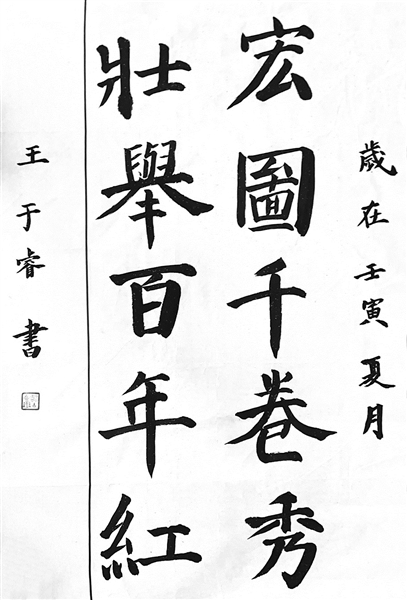 歲在壬寅夏月
宏圖千卷秀
壯舉百年紅
王于睿書